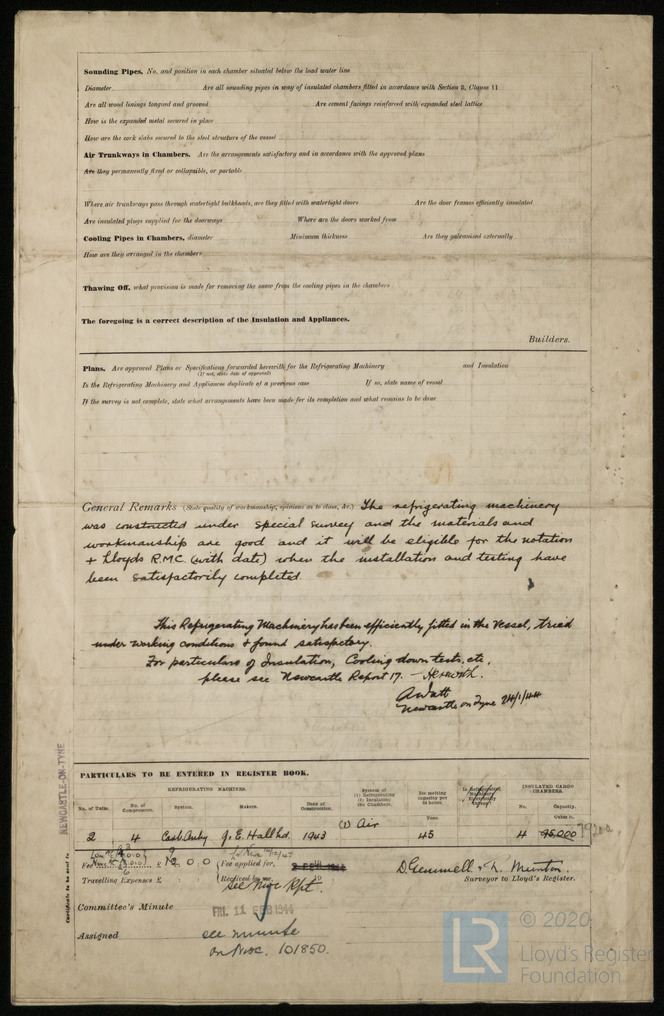 Sounding Pipes, No. and position in each chamber situated below the load water line
Diameter Are all sounding pipes in way of insulated chambers fitted in accordance with Section 8, Clause 11
Are all wood linings tongued and grooved Are cement facings reinforced with expanded steel lattice
How is the expanded metal secured in place
How are the cork slabs secured to the steel structure of the vessel
Air Trunkways in Chambers. Are the arrangements satisfactory and in accordance with the approved plans
Are they permanently fixed or collapsible, or portable
Where air trunkways pass through watertight bulkheads, are they fitted with watertight doors Are the door frames efficiently insulated
Are insulated plugs supplied for the doorways Where are the doors worked from
Cooling Pipes in Chambers, diameter Minimum thickness Are they galvanised externally
How are they arranged in the chambers
Thawing Off, what provision is made for removing the snow from the cooling pipes in the chambers
The foregoing is a correct description of the Insulation and Appliances.
Builders.
Plans. Are approved Plans or Specifications forwarded herewith for the Refrigerating Machinery and Insulation
(If not, state date of approval)
Is the Refrigerating Machinery and Appliances duplicate of a previous case If so, state name of vessel
If the survey is not complete, state what arrangements have been made for its completion and what remains to be done
General Remarks (State quality of workmanship, opinions as to class, &c.) The refrigerating machinery
was constructed under special survey and the materials and
workmanship are good and it will be eligible for the notation
+ Lloyds R.M.C. (with date) when the installation and testing have
been satisfactorily completed
This Refrigerating Machinery has been efficiently fitted in the Vessel, tried
under working conditions & found satisfactory.
For particulars of Insulation, Cooling down tests, etc,
please see Newcastle Report 17. - Herewith.
A Watt
Newcastle on Tyne 24/1/44
NEWCASTLE-ON-TYNE
Certificate to be sent to
PARTICULARS TO BE ENTERED IN REGISTER BOOK.
REFRIGERATING MACHINES. INSULATED CARGO CHAMBERS.
No. of Units. No. of Compressors. System. Makers. Date of Construction. System of (1) Refrigerating (2) Insulating the Chambers. Ice melting capacity per 24 hours. No. Capacity.
Tons. Cubic ft.
2 4 Carb Anhy J. E. Hall Ld. 1943 (1) Air 45 4 95,000
Fee £ 12 0 0 Fee applied for,
Travelling Expenses £ Received by me, 19
See Nwc Rpt.
D. Gemmell & Munton.
Surveyor to Lloyd's Register.
Committee's Minute FRI. 11 FEB 1944
Assigned see minute
on Nwc. 101850.
LR © 2020
Lloyd's Register
Foundation